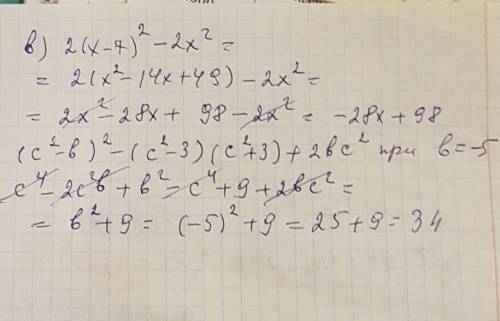 в) 2(x-7)² - 2x² =
= 2(x² - 14x + 49) - 2x² =
= 2x² - 28x + 98 - 2x² = -28x + 98
(c² - b)² - (c² - 3)(c² + 3) + 2bc² при b = -5
c⁴ - 2c²b + b² - c⁴ + 9 + 2bc² =
= b² + 9 = (-5)² + 9 = 25 + 9 = 34